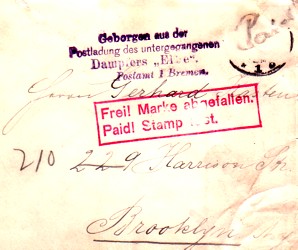 Geborgen aus der
Postladung des untergegangenen
Dampfers „Elbe“.
Postamt 1 Bremen.
Paid
1
Herrn Gerhard
Frei! Marke abgefallen.
Paid! Stamp lost.
210 229 Harrison Str.
Brooklyn N.Y.